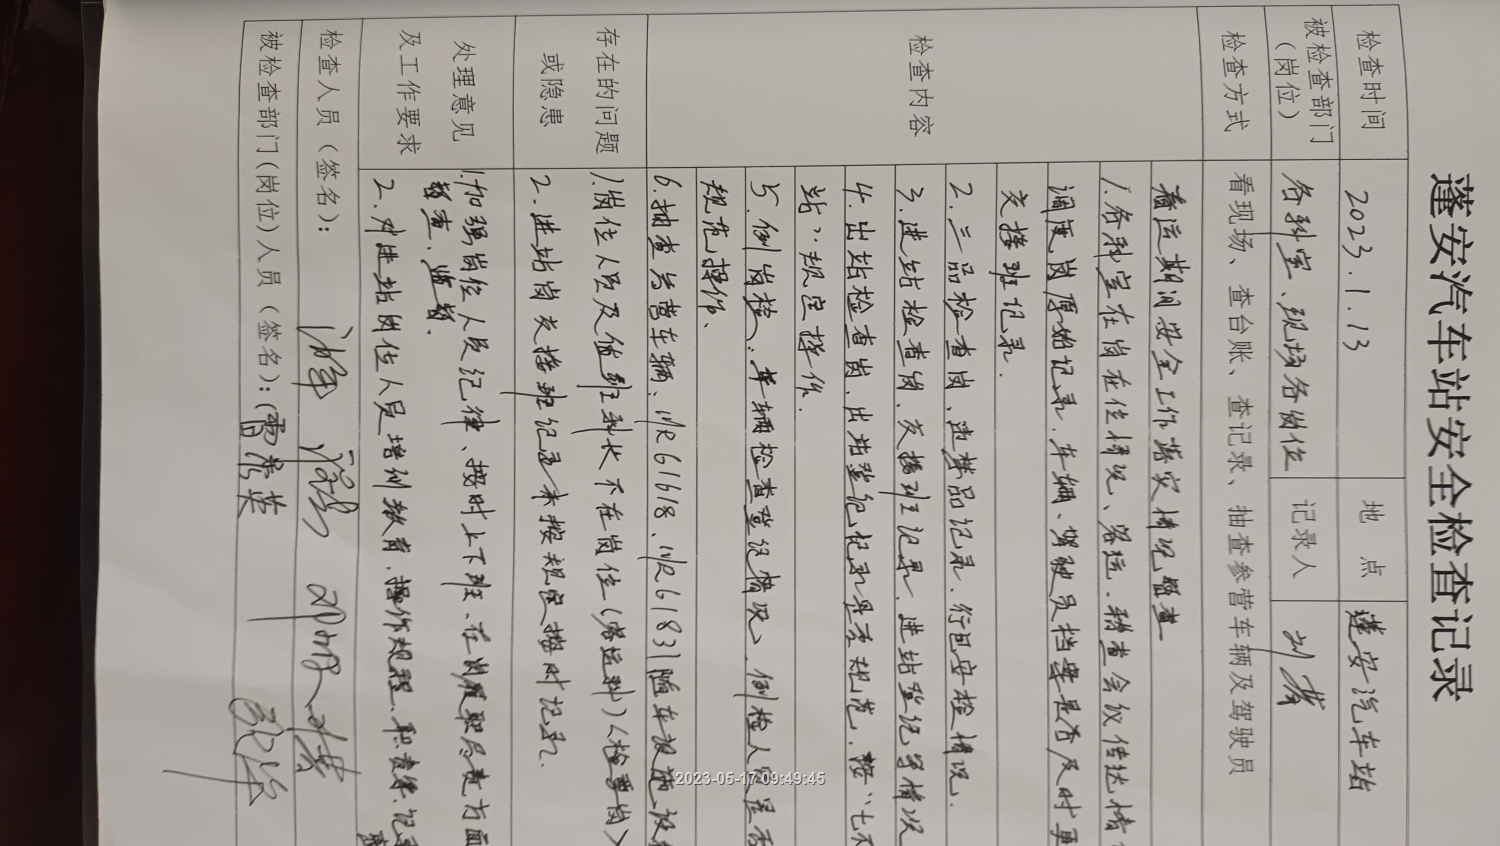 蓬安汽车站安全检查记录
检查时间 2023.1.13 地 点 蓬安汽车站
被检查部门（岗位） 各科室、现场各岗位 记录人 刘
检查方式 看现场、查台账、查记录、抽查参营车辆及驾驶员
检查内容
春运期间安全工作落实情况监查
1.各科室在岗在位情况、客运、稽查会议传达情
调度岗原始记录.车辆、驾驶员档案是否及时更
交接班记录.
2.三品检查岗.违禁品记录.行包安检情况.
3.进站检查岗.交接班记录.进站登记写情况
4.出站检查岗.出站登记记录是否规范、按“七不
站”规定操作.
5.例岗检:车辆检查登记情况,例检人员是否
规范操作、
6.抽查参营车辆:川R61618、川R61831随车设施设
存在的问题或隐患
1.岗位人员及值班科长不在岗位(客运科)
2.进站岗交接班记录未按规定按时记录.
处理意见及工作要求
1.加强岗位人员纪律、按时上下班、在岗履职尽责方面
督查、监督.
2.对进站岗位人员培训教育.操作规程、职责
检查人员（签名）:
被检查部门(岗位)人员（签名）:
2023-05-17 09:49:45